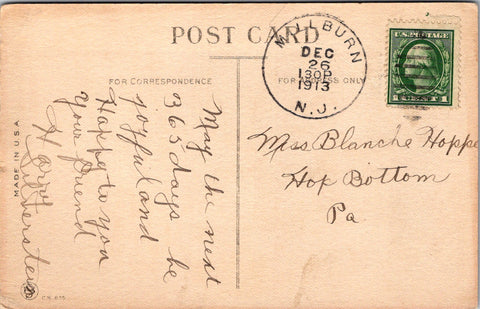 POST CARD
FOR CORRESPONDENCE
FOR ADDRESS ONLY
MILLBURN
DEC
26
130P
1913
N.J.
U.S. POSTAGE
May the next
365 days be
joyful and
Happy to you
your friend
Miss Blanche Hoppe
Hop Bottom
Pa
MADE IN U.S.A.